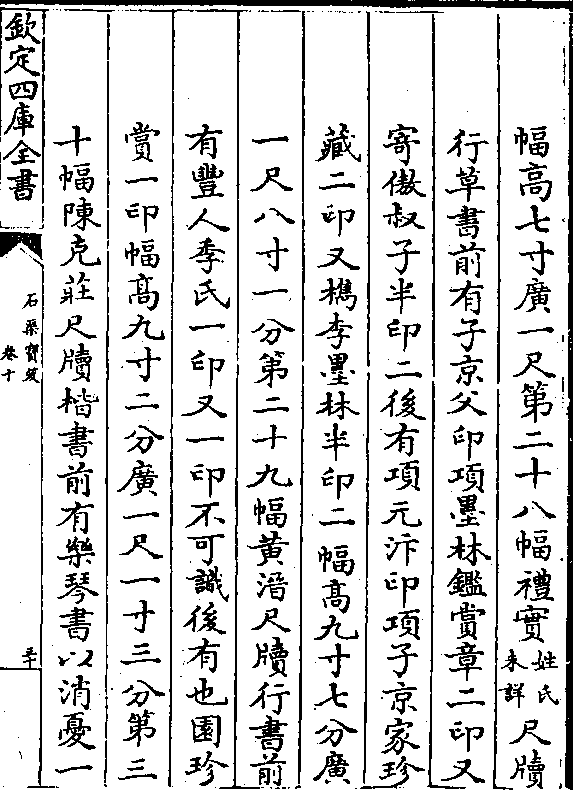 幅高七寸廣一尺第二十八幅禮實姓氏未詳尺牘
行草書前有子京父印項墨林鑑賞章二印又
寄傲叔子半印二後有項元汴印項子京家珍
藏二印又檇李墨林半印二幅高九寸七分廣
一尺八寸一分第二十九幅黄溍尺牘行書前
有豐人季氏一印又一印不可識後有也園珍
賞一印幅高九寸二分廣一尺一寸三分第三
十幅陳克莊尺牘楷書前有樂琴書以消憂一
欽定四庫全書
石渠寶笈
卷十
三十